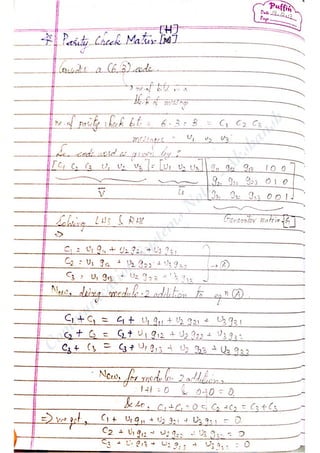 Puffin
Date
Page
* Parity Check Matrix [H]
Consider a (6,3) code
→ no. of bits in a
block of message
no. of parity check bit = 6-3 = 3 = C1 C2 C3
message = U1 U2 U3
The code word is given by:
[C1 C2 C3 U1 U2 U3] = [U1 U2 U3] [g11 g12 g13 1 0 0
g21 g22 g23 0 1 0
g31 g32 g33 0 0 1]
V U Generator matrix [G]
Solving LHS & RHS
⇒
C1 = U1 g11 + U2 g21 + U3 g31
C2 = U1 g12 + U2 g22 + U3 g32 → (A)
C3 = U1 g13 + U2 g23 + U3 g33
Now, doing modulo-2 addition to eqn (A)
C1 + C1 = C1 + U1 g11 + U2 g21 + U3 g31
C2 + C2 = C2 + U1 g12 + U2 g22 + U3 g32
C3 + C3 = C3 + U1 g13 + U2 g23 + U3 g33
Now, for modulo-2 additions
1+1 = 0 & 0+0 = 0
& so, C1 + C1 = 0 = C2 + C2 = C3 + C3
⇒ we get, C1 + U1 g11 + U2 g21 + U3 g31 = 0
C2 + U1 g12 + U2 g22 + U3 g32 = 0
C3 + U1 g13 + U2 g23 + U3 g33 = 0